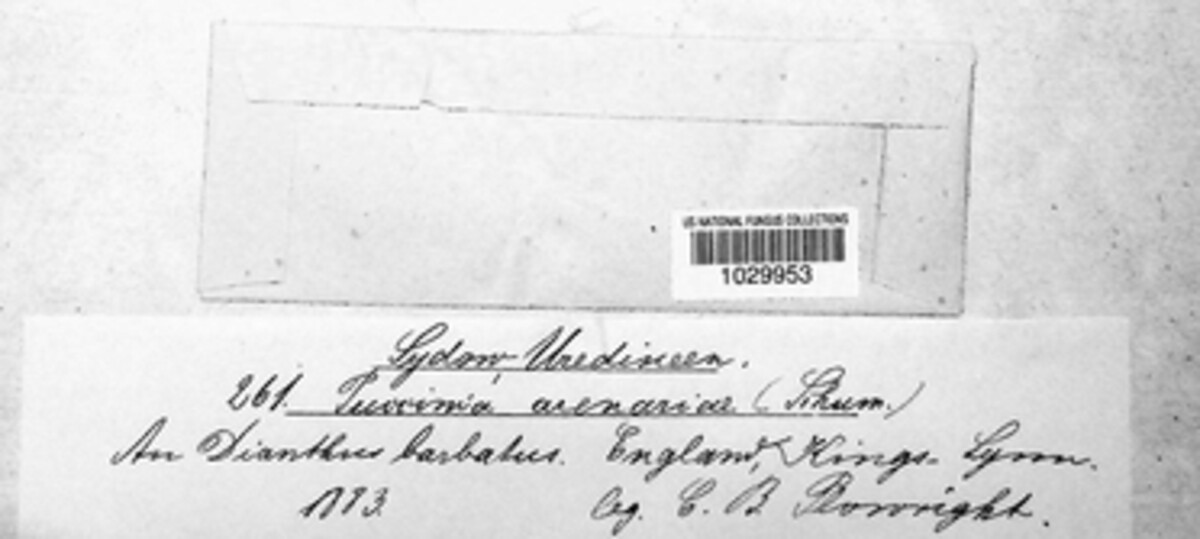 US NATIONAL FUNGUS COLLECTIONS
1029953
Sydow, Uredineen.
261. Puccinia arenariae (Schum.)
An Dianthus barbatus. England, Kings-Lynn.
1883. leg. C. B. Plowright.